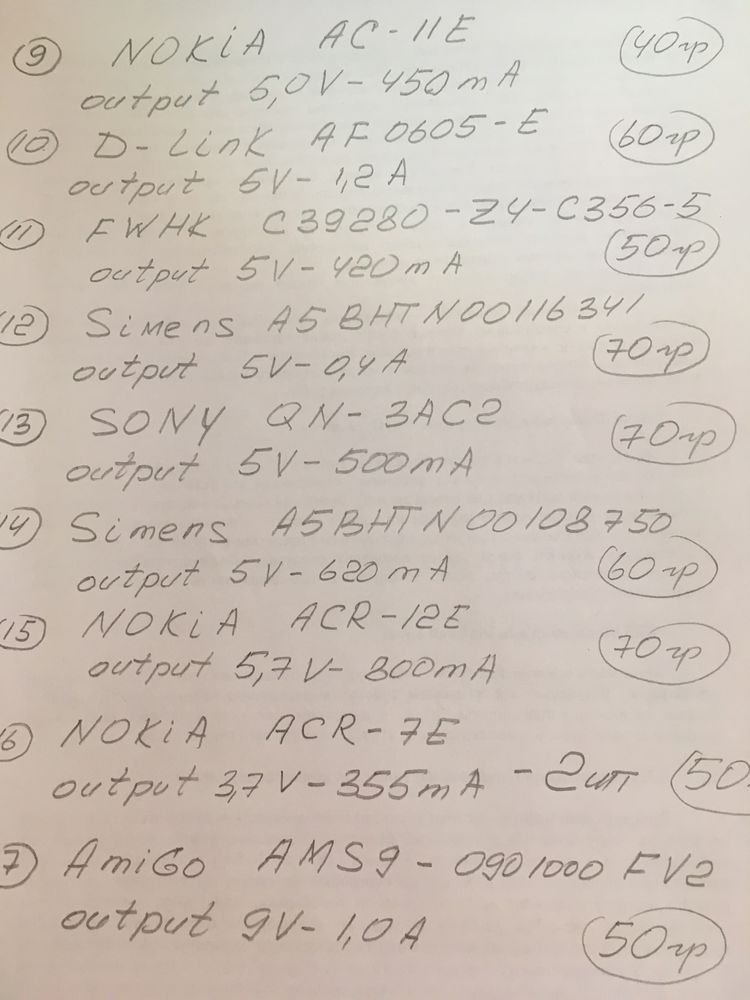 9 NOKiA AC-11E 40гр
output 5,0V-450mA
10 D-Link AF0605-E 60гр
output 5V-1,2A
11 FWHK C39280-Z4-C356-5
output 5V-420mA 50гр
12 Simens A5BHTN00116341
output 5V-0,4A 70гр
13 SONY QN-3AC2 70гр
output 5V-500mA
14 Simens A5BHTN00108750
output 5V-620mA 60гр
15 NOKiA ACR-12E 70гр
output 5,7V-800mA
6 NOKiA ACR-7E
output 3,7V-355mA -2шт 50
7 AmiGo AMS9-0901000FV2
output 9V-1,0A 50гр